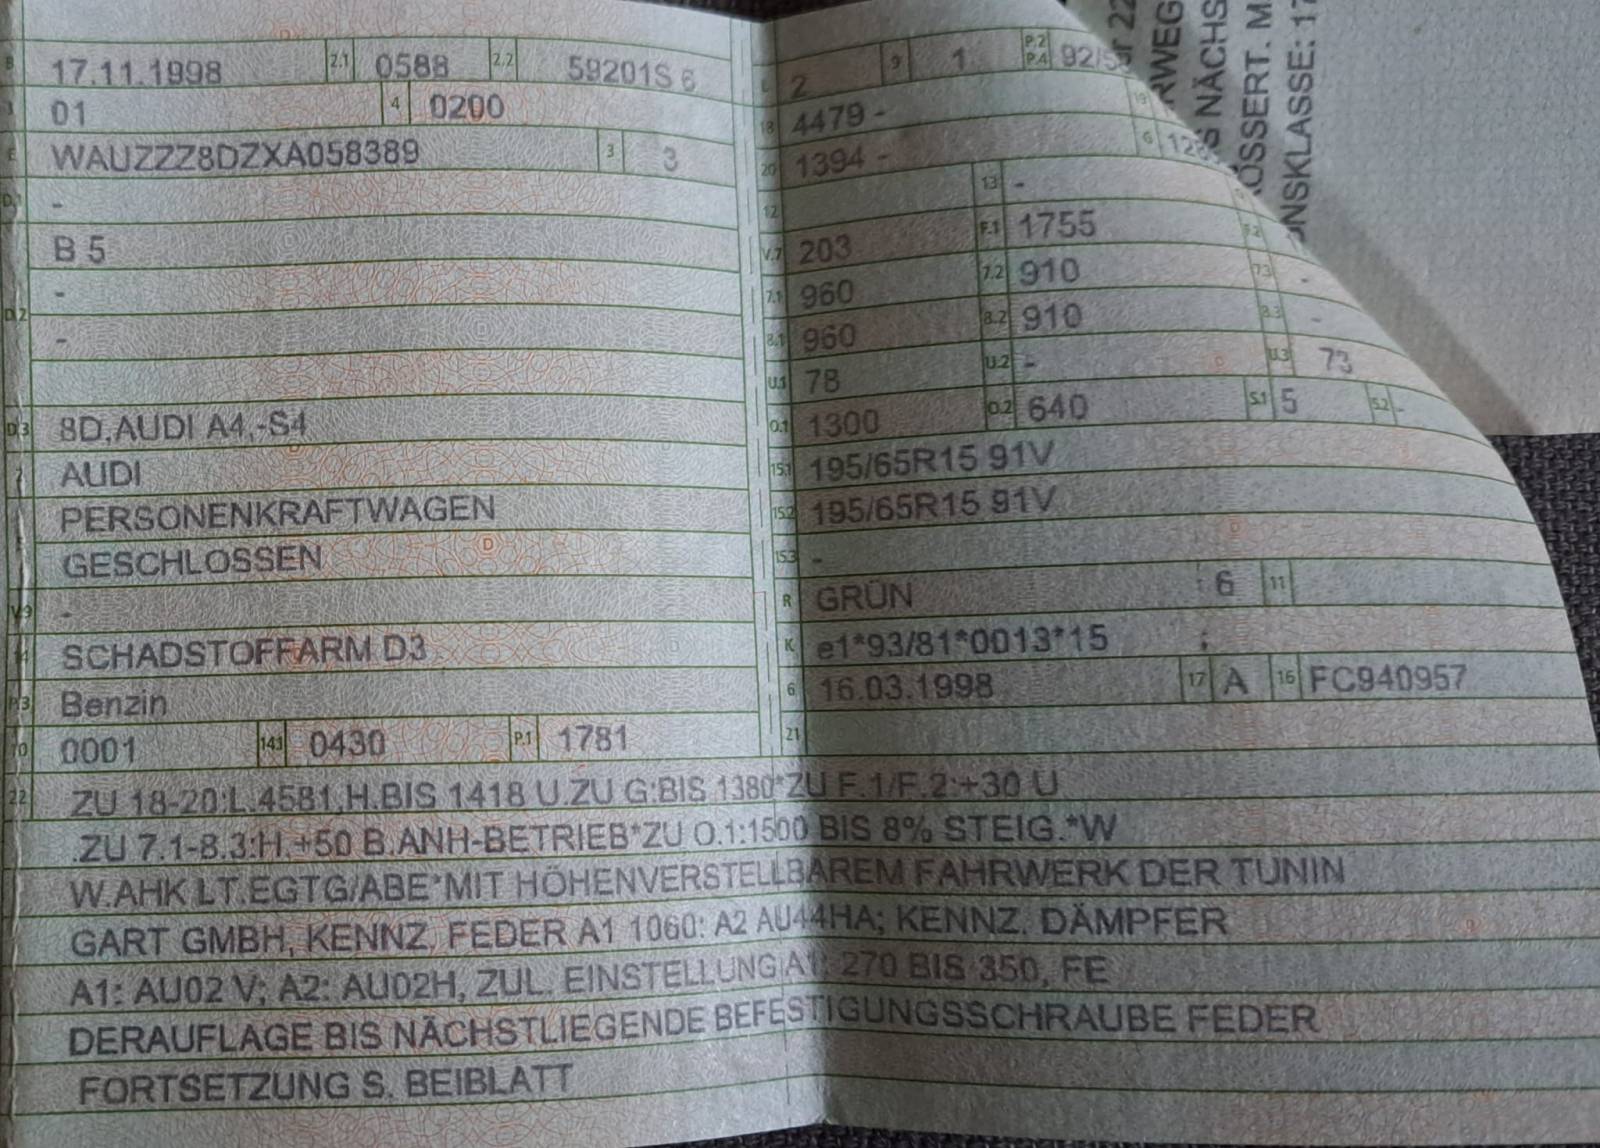 B 17.11.1998 2.1 0588 2.2 59201S 6
01 4 0200
E WAUZZZ8DZXA058389 3 3
D.1 -
B 5
-
D.2
-
D.3 8D,AUDI A4,-S4
2 AUDI
PERSONENKRAFTWAGEN
GESCHLOSSEN
V.9 -
14 SCHADSTOFFARM D3
P.3 Benzin
10 0001 14.1 0430 P.1 1781
2 9 1 P.2 P.4 92/
18 4479 - 19
20 1394 - G 128
12 13 -
V.7 203 F.1 1755 F.2
7.1 960 7.2 910 7.3 -
8.1 960 8.2 910 8.3 -
U.1 78 U.2 - U.3 73
O.1 1300 O.2 640 S.1 5 S.2 -
15.1 195/65R15 91V
15.2 195/65R15 91V
15.3 -
R GRÜN 6 11
K e1*93/81*0013*15
6 16.03.1998 17 A 16 FC940957
21
22 ZU 18-20:L.4581,H.BIS 1418 U.ZU G:BIS 1380*ZU F.1/F.2:+30 U
.ZU 7.1-8.3:H.+50 B.ANH-BETRIEB*ZU O.1:1500 BIS 8% STEIG.*W
W.AHK LT.EGTG/ABE*MIT HÖHENVERSTELLBAREM FAHRWERK DER TUNIN
GART GMBH, KENNZ. FEDER A1 1060: A2 AU44HA; KENNZ. DÄMPFER
A1: AU02 V; A2: AU02H, ZUL. EINSTELLUNG A1: 270 BIS 350, FE
DERAUFLAGE BIS NÄCHSTLIEGENDE BEFESTIGUNGSSCHRAUBE FEDER
FORTSETZUNG S. BEIBLATT
NÄCHS
ÄUSSERT. M
ONSKLASSE: 17